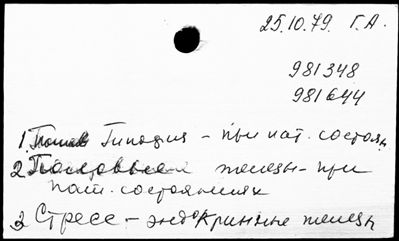 25.10.79. Г.А.
981348
981644
1. Гипофиз - при пат. состоян
2. Половые железы - при
пат. состояниях
3. Стресс - эндокринные железы